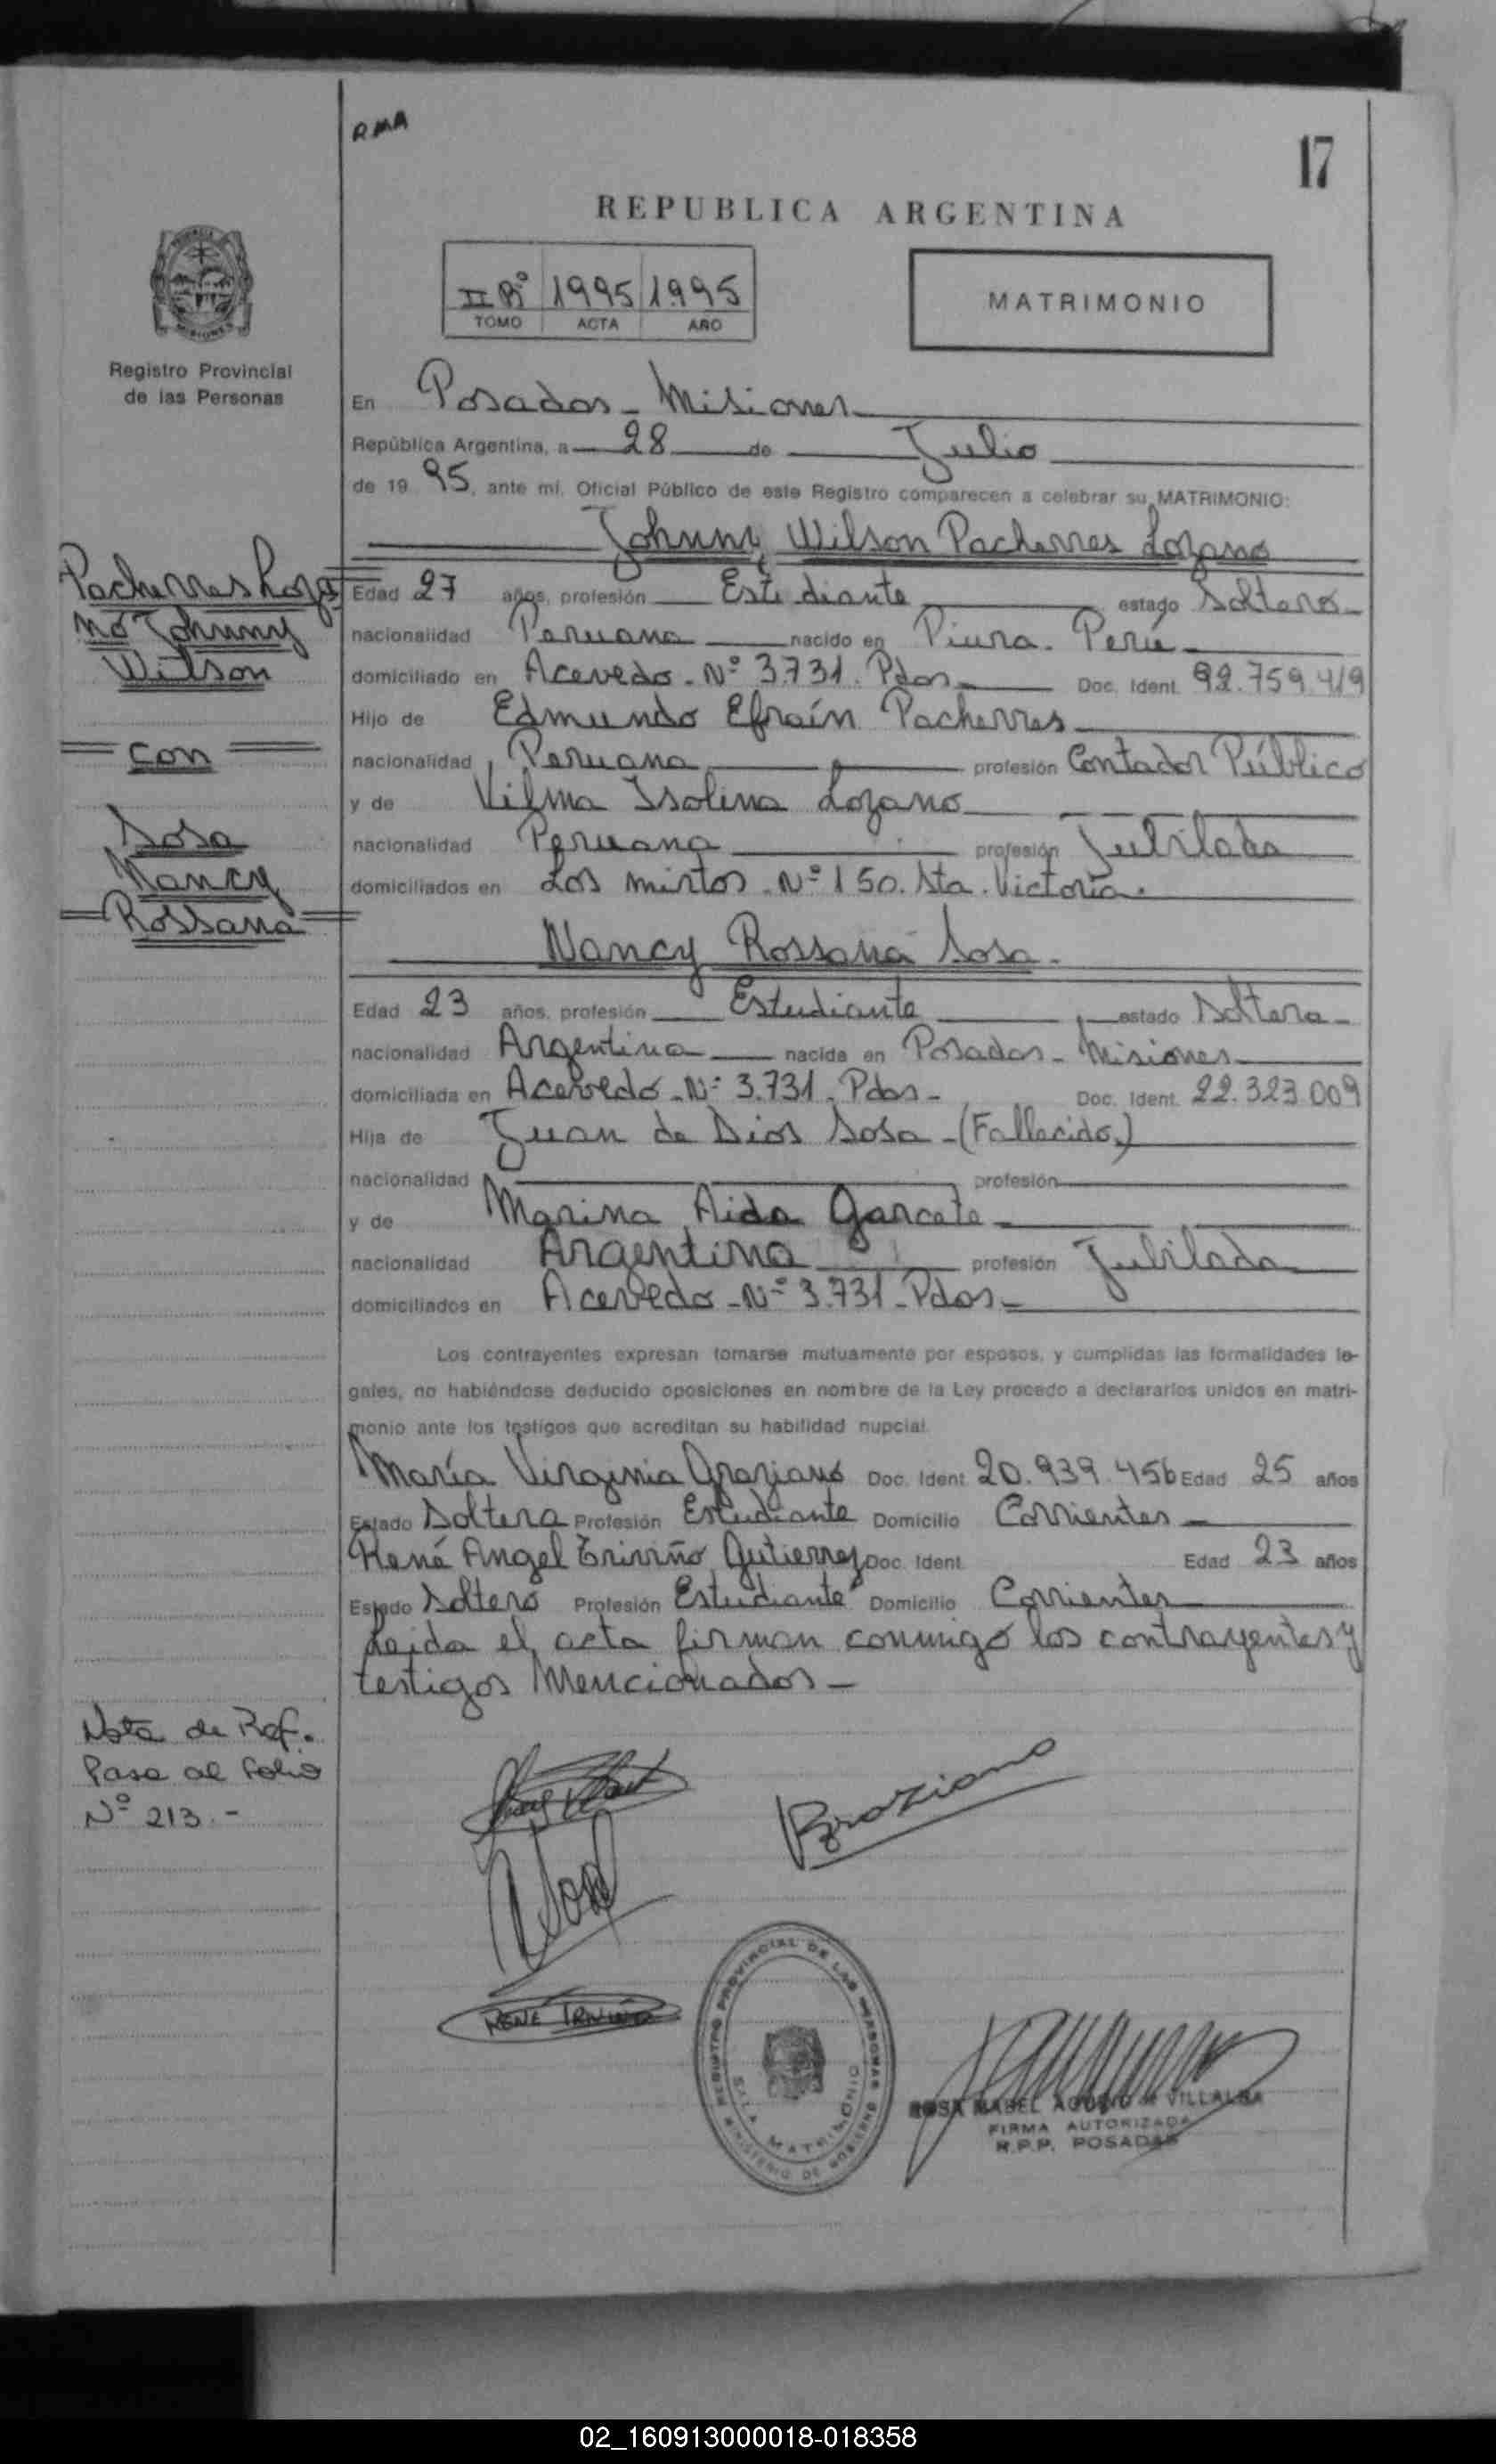 RMA
17
REPUBLICA ARGENTINA
II Bº 1995 1995
TOMO ACTA AÑO
MATRIMONIO
Registro Provincial
de las Personas
En Posadas - Misiones
República Argentina, a 28 de Julio
de 19 95, ante mí, Oficial Público de este Registro comparecen a celebrar su MATRIMONIO:
Johnny Wilson Pacherres Lozano
Pacherres Loza
no Johnny
Wilson
con
Sosa
Nancy
Rossana
Edad 27 años, profesión Estudiante estado Soltero
nacionalidad Peruana nacido en Piura. Perú
domiciliado en Acevedo - Nº 3.731. Pdas Doc. Ident. 92.759.419
Hijo de Edmundo Efraín Pacherres
nacionalidad Peruana profesión Contador Público
y de Vilma Isolina Lozano
nacionalidad Peruana profesión Jubilada
domiciliados en Los mirtos - Nº 150. Sta. Victoria.
Nancy Rossana Sosa.
Edad 23 años, profesión Estudiante estado Soltera
nacionalidad Argentina nacida en Posadas - Misiones
domiciliada en Acevedo - Nº 3.731. Pdas - Doc. Ident. 22.323.009
Hija de Juan de Dios Sosa - (Fallecido)
nacionalidad profesión
y de Marina Aida Garcete
nacionalidad Argentina profesión Jubilada
domiciliados en Acevedo - Nº 3.731 - Pdas -
Los contrayentes expresan tomarse mutuamente por esposos, y cumplidas las formalidades le-
gales, no habiéndose deducido oposiciones en nombre de la Ley procedo a declararlos unidos en matri-
monio ante los testigos que acreditan su habilidad nupcial.
María Virginia Graziano Doc. Ident. 20.939.456 Edad 25 años
Estado Soltera Profesión Estudiante Domicilio Corrientes
René Angel Triviño Gutierrez Doc. Ident. Edad 23 años
Estado Soltero Profesión Estudiante Domicilio Corrientes
Leida el acta firman conmigo los contrayentes y
testigos Mencionados -
Nota de Ref.
Pasa al folio
Nº 213.-
Graziano
RENE TRIVIÑO
REGISTRO PROVINCIAL DE LAS PERSONAS
SALA MATRIMONIO
MINISTERIO DE GOBIERNO
ROSA MABEL VILLALBA
FIRMA AUTORIZADA
R.P.P. POSADAS
02_160913000018-018358